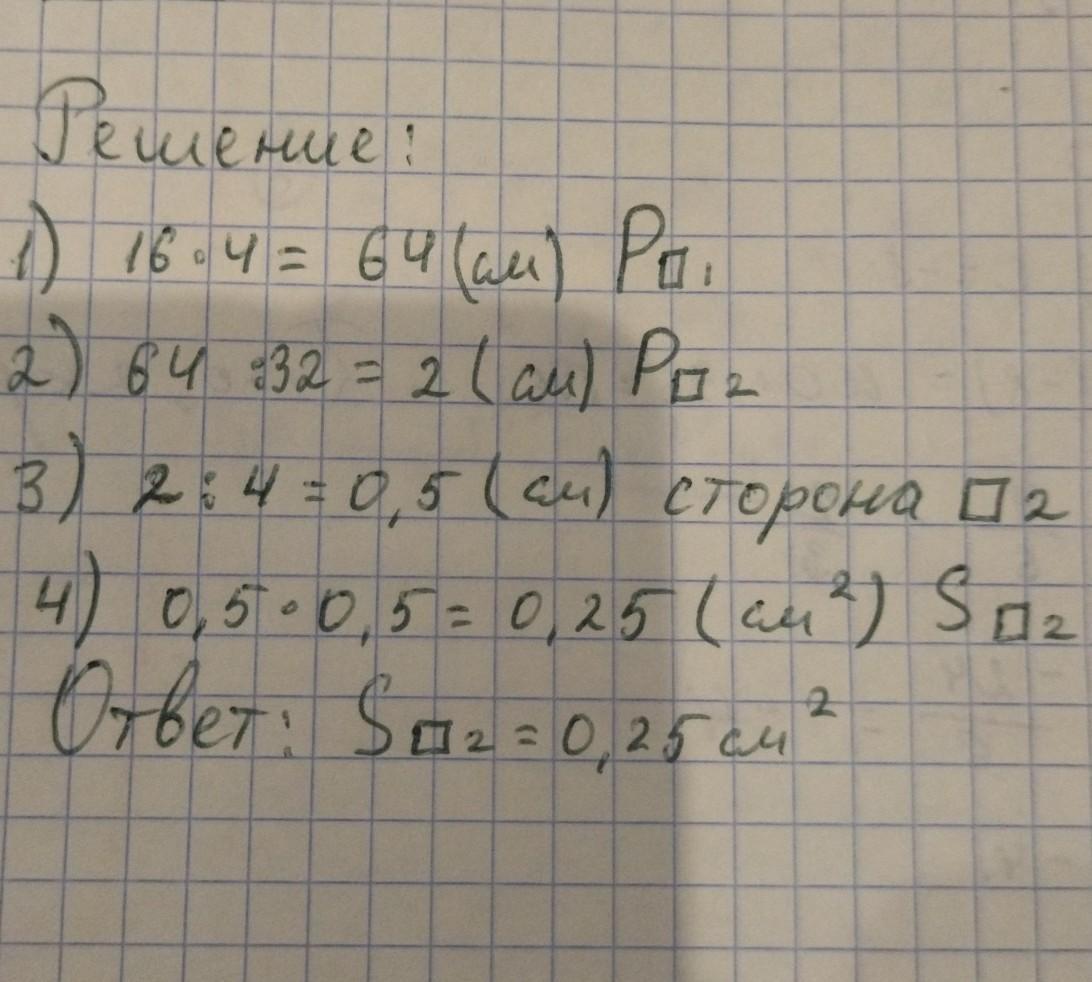 Решение:
1) 16·4 = 64 (см) P□1
2) 64 :32 = 2 (см) P□2
3) 2:4 = 0,5 (см) сторона □2
4) 0,5·0,5 = 0,25 (см²) S□2
Ответ: S□2 = 0,25 см²